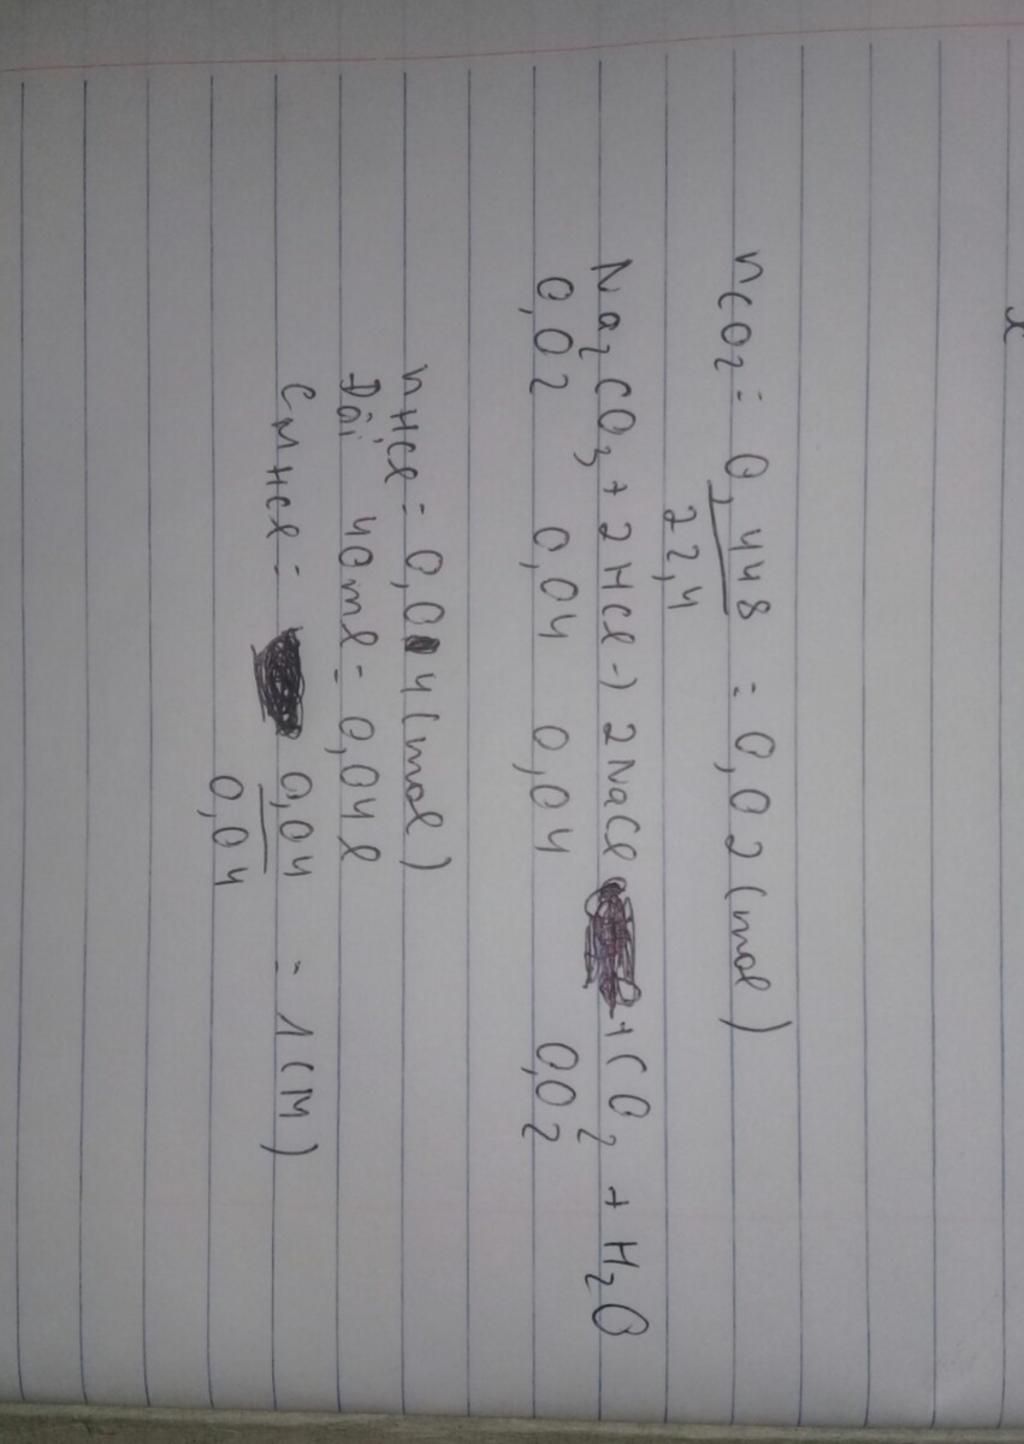 nCO2 = 0,448 = 0,02 (mol)
22,4
Na2CO3 + 2HCl -) 2NaCl + CO2 + H2O
0,02 0,04 0,04 0,02
nHCl = 0,04 (mol)
Đổi 40ml = 0,04l
CMHCl = 0,04 = 1 (M)
0,04